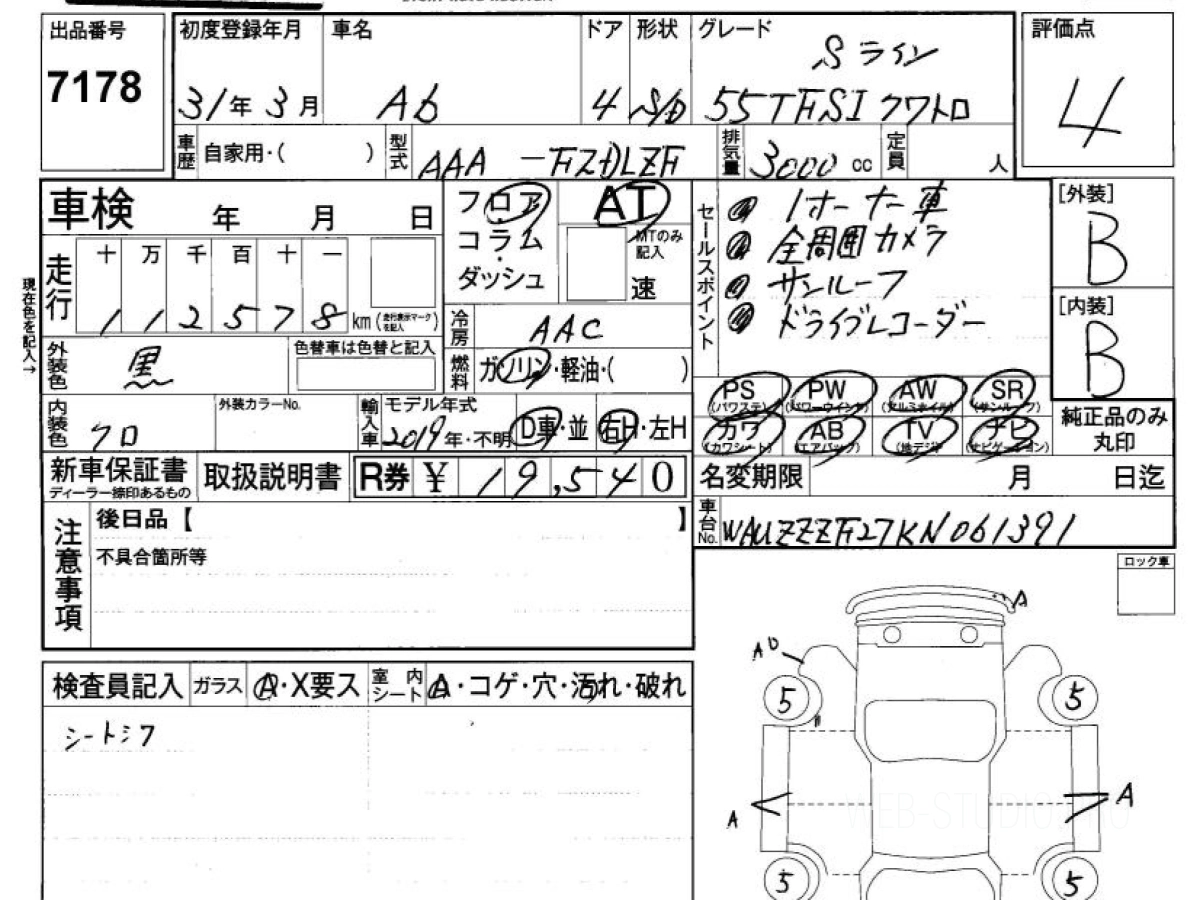 出品番号 初度登録年月 車名 ドア 形状 グレード 評価点
Sライン
7178 31年 3月 A6 4 S/D 55TFSI クワトロ 4
車歴 自家用・( ) 型式 AAA-F2DLZF 排気量 3000cc 定員 人
車検 年 月 日
フロア・コラム・ダッシュ AT
MTのみ記入 速
セールスポイント
1オーナー車
全周囲カメラ
サンルーフ
ドライブレコーダー
[外装]
B
[内装]
B
現在色を記入→
走行 十 万 千 百 十 一
112578 km (走行表示マークを記入)
冷房 AAC
外装色 黒 色替車は色替と記入
燃料 ガソリン・軽油・( )
PS (パワステ) PW (パワーウインド) AW (アルミホイル) SR (サンルーフ)
カワ (カワシート) AB (エアバッグ) TV (地デジ) ナビ (ナビゲーション)
純正品のみ丸印
内装色 クロ 外装カラーNo. 輸入車 モデル年式 2019年・不明 D車・並 右H・左H
新車保証書 ディーラー捺印あるもの 取扱説明書 R券 ¥ 19,540
名変期限 月 日迄
車台No. WAUZZZF27KN061391
注意事項 後日品【 】
不具合箇所等
ロック車
検査員記入 ガラス A・X要ス 室内シート A・コゲ・穴・汚れ・破れ
シートシワ
A
AU
5 5
A A
5 5
WEB-STUDIO.PRO